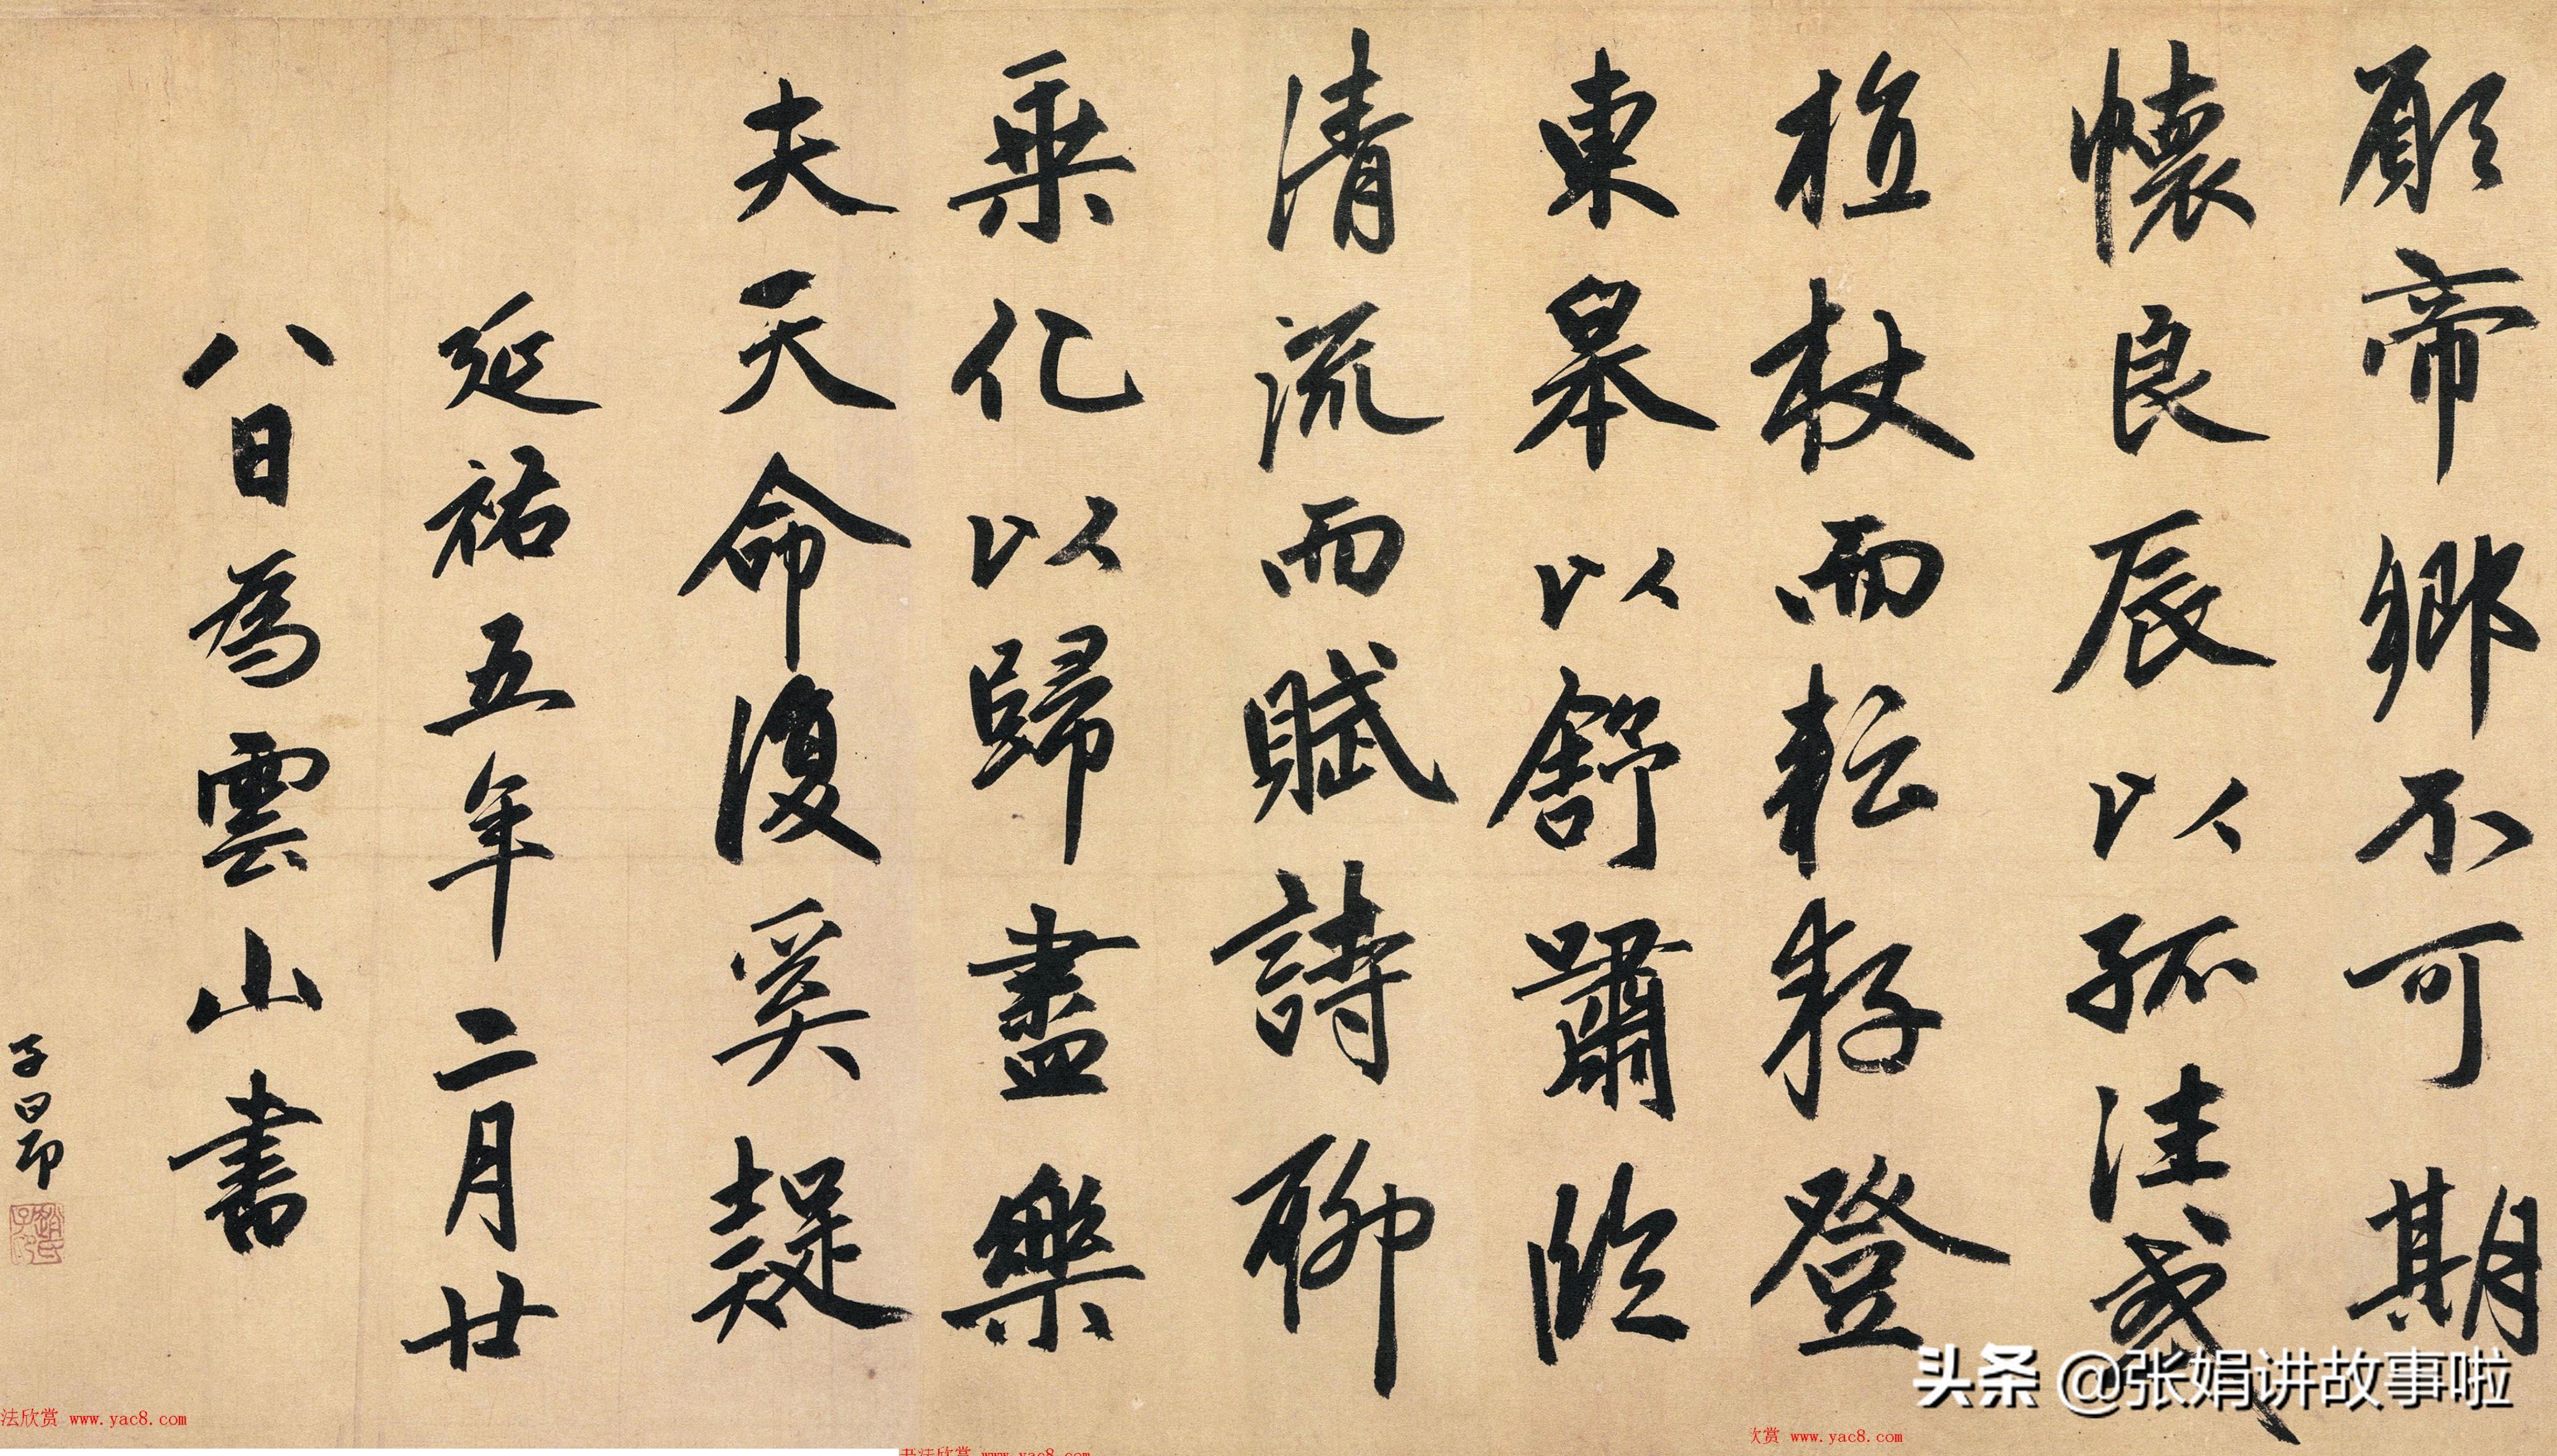 願帝鄉不可期
懷良辰以孤往或
植杖而耘耔登
東皋以舒嘯臨
清流而賦詩聊
乘化以歸盡樂
夫天命復奚疑
延祐五年二月廿
八日為雲山書
子昂
趙氏子昂
头条 @张娟讲故事啦
法欣赏 www.yac8.com
书法欣赏 www.yac8.com
欣赏 www.yac8.com